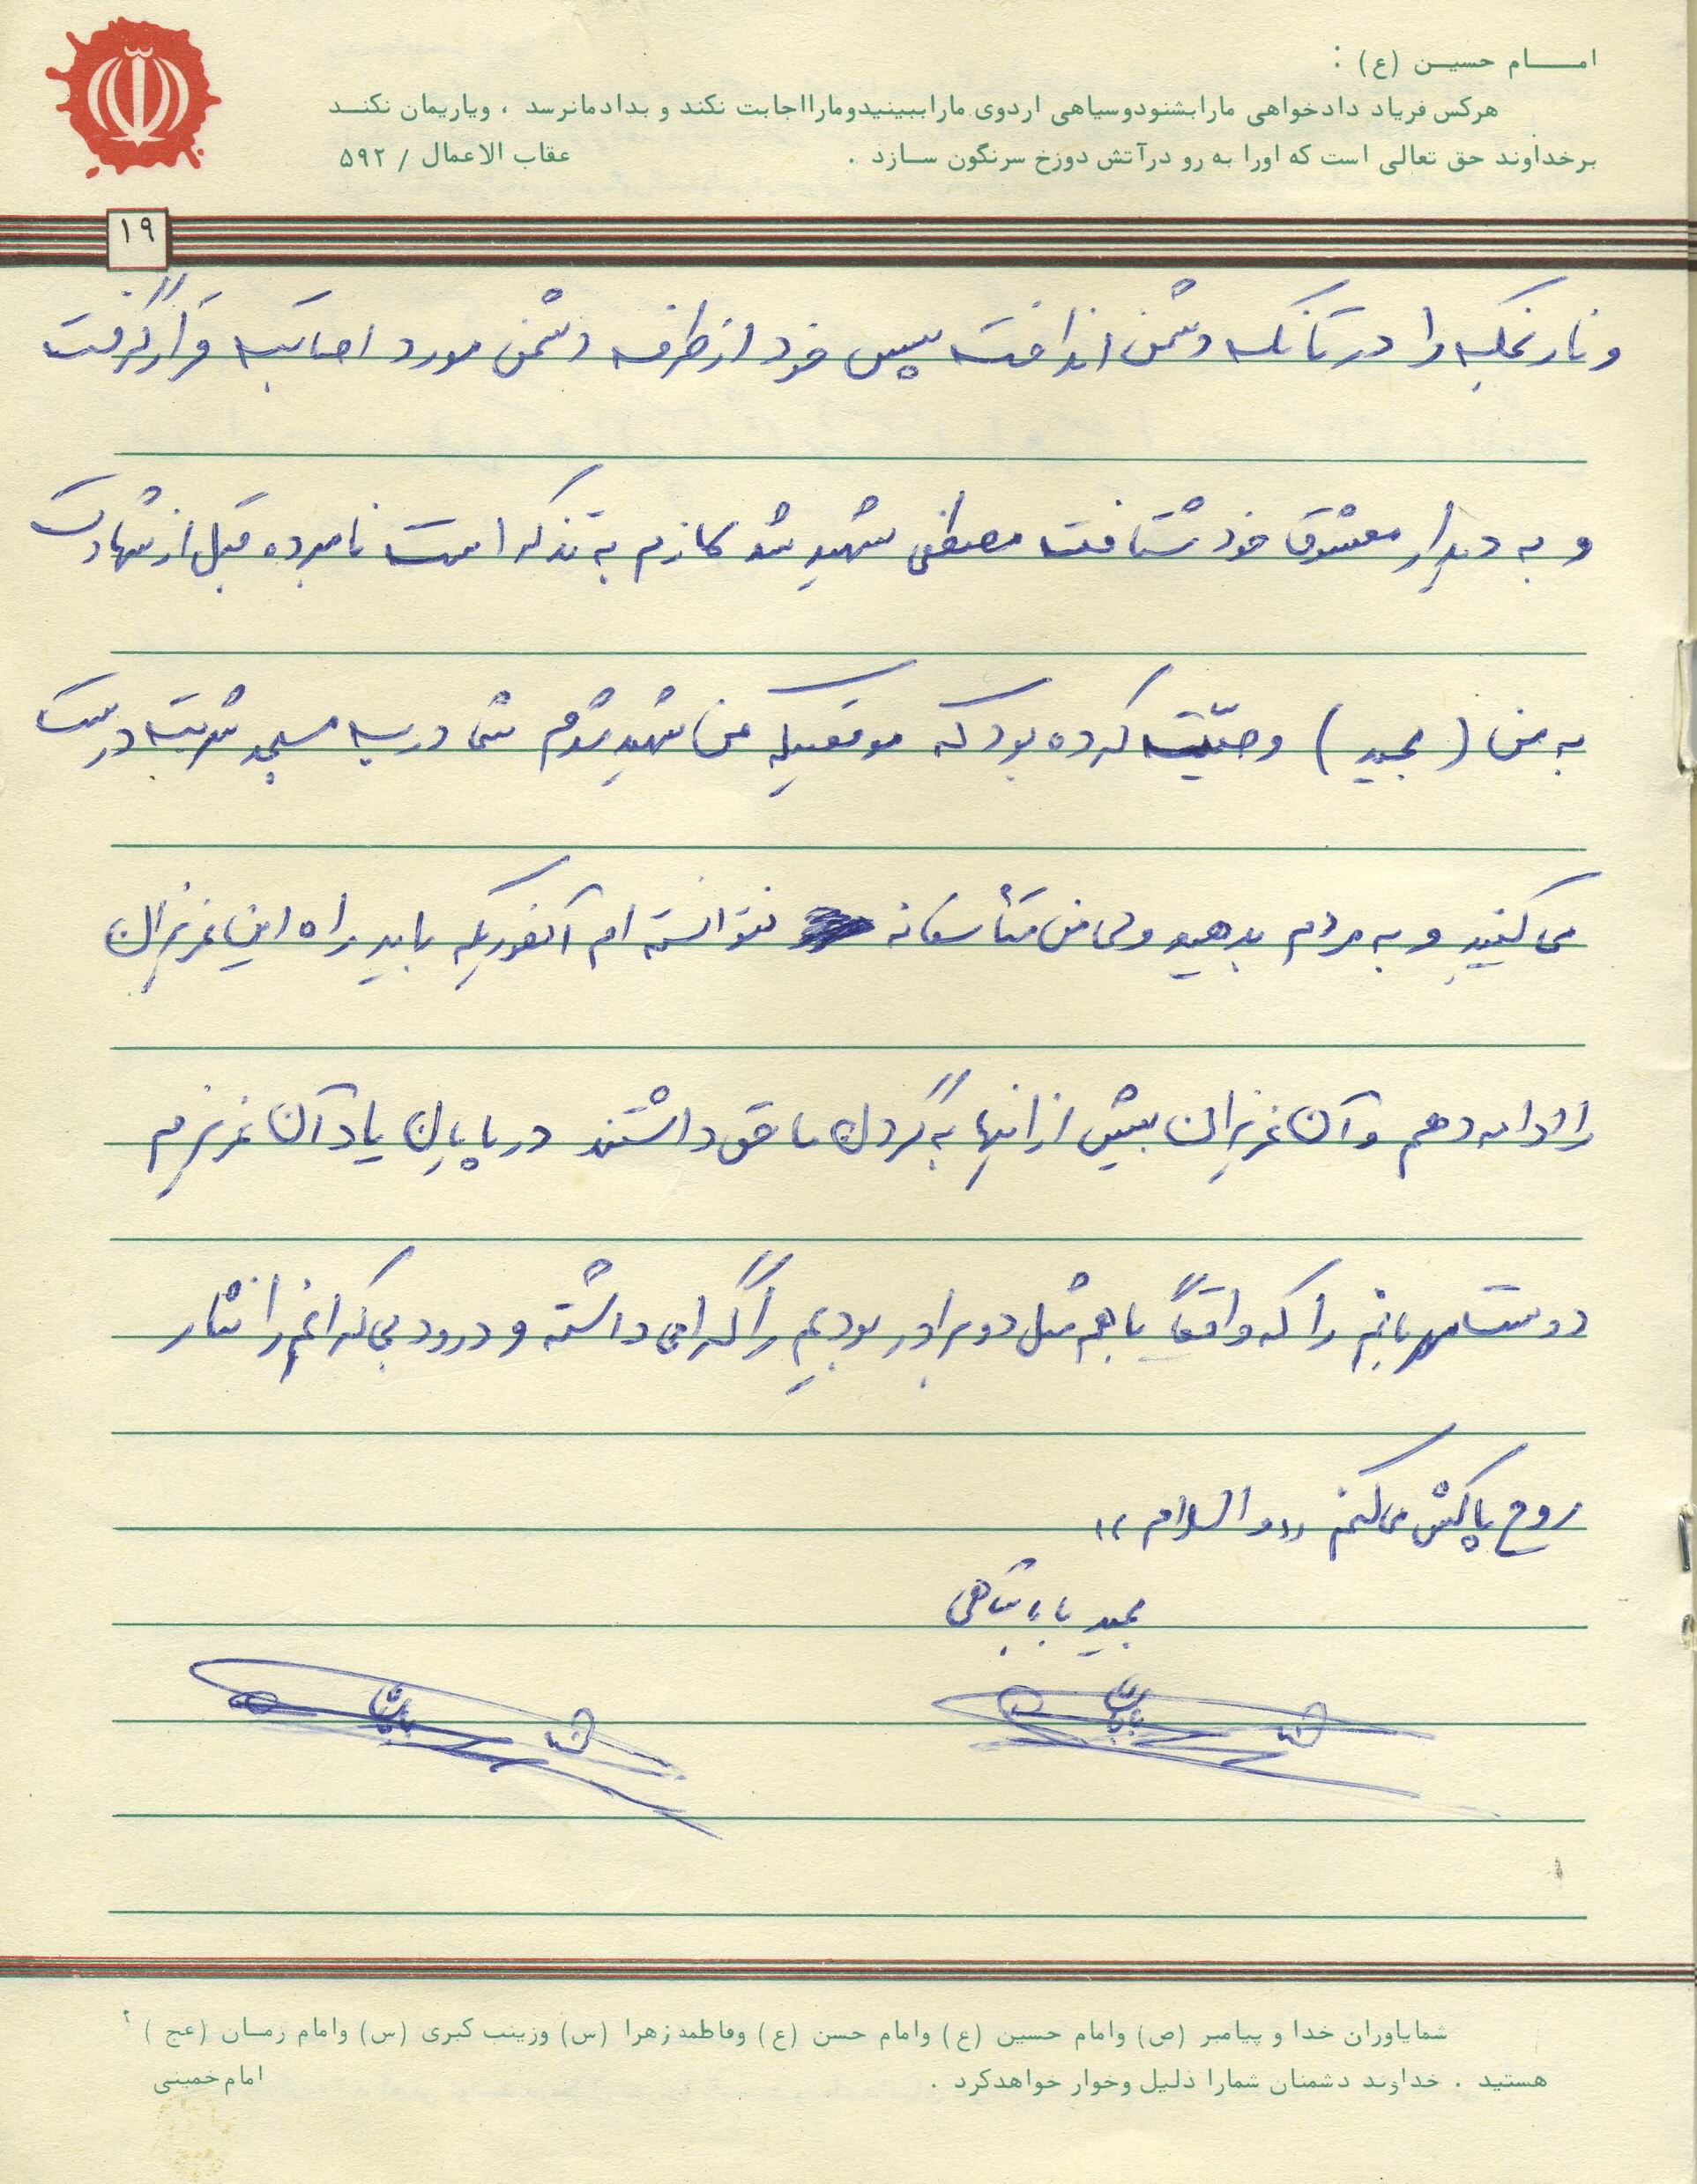 امـــــام حسیـــن (ع) :
هرکس فریاد دادخواهی مارابشنودوسیاهی اردوی ماراببینیدوماراااجابت نکند و بدادمانرسد ، ویاریمان نکنــد
برخداوند حق تعالی است که اورا به رو درآتش دوزخ سرنگون ســازد .
عقاب الاعمال / ۵۹۲
۱۹
و نارنجک را در تانک دشمن انداخت سپس خود از طرف دشمن مورد اصابت قرار گرفت
و به دیدار معشوق خود شتافت مصطفی شهید شد لازم به تذکر است نامبرده قبل از شهادت
به من ( مجید ) وصیّت کرده بود که موقعیکه من شهید شدم شما در مسجد شربت درست
می کنید و به مردم بدهید ولی من متأسفانه نتوانسته ام آنطوریکه باید راه این عزیزان
را ادامه دهم و آن عزیزان بیش از اینها به گردن ما حق داشتند در پایان یاد آن عزیزم
دوست مهربانم را که واقعاً با هم مثل دو برادر بودیم را گرامی داشته و درود بی کرانم را نثار
روح پاکش می کنم «والسلام»
مجید باباشاهی
شمایاوران خدا و پیامبر (ص) وامام حسین (ع) وامام حسن (ع) وفاطمه زهرا (س) وزینب کبری (س) وامام زمـان (عج )
هستید . خداوند دشمنان شمارا ذلیل وخوار خواهدکرد .
امام خمینی